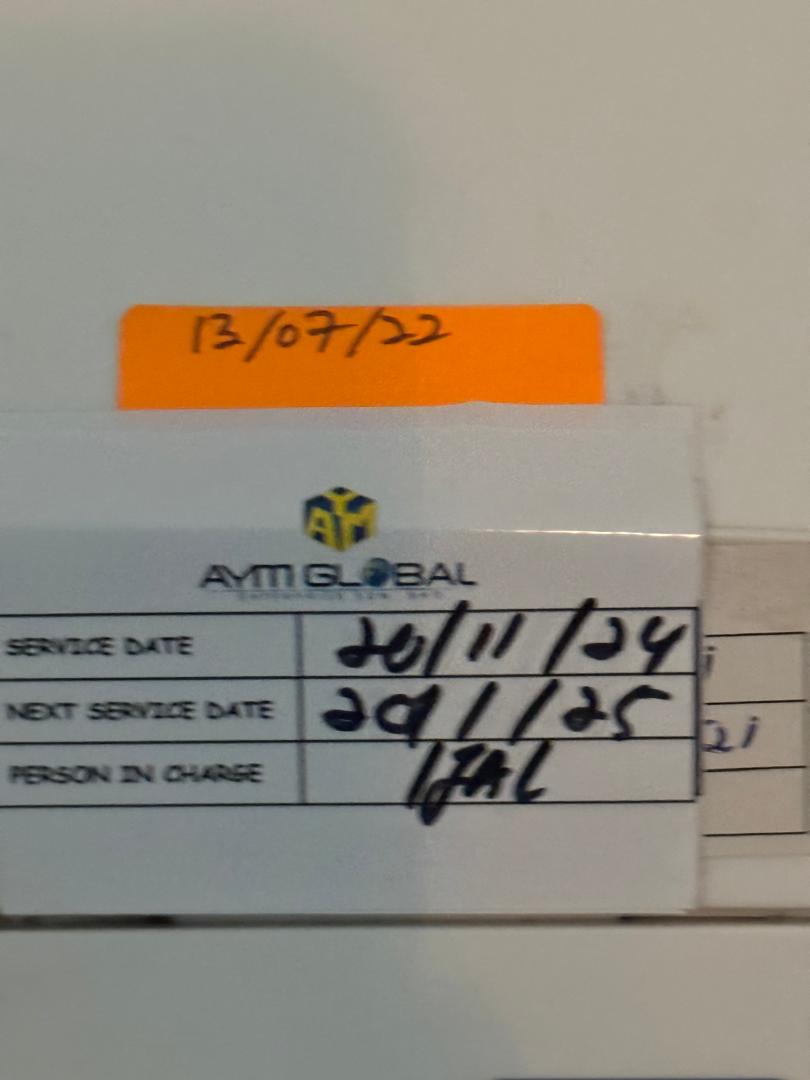 13/07/22
AYM
AYM GLOBAL
SERVICE DATE 20/11/24
NEXT SERVICE DATE 20/1/25
PERSON IN CHARGE IJAL